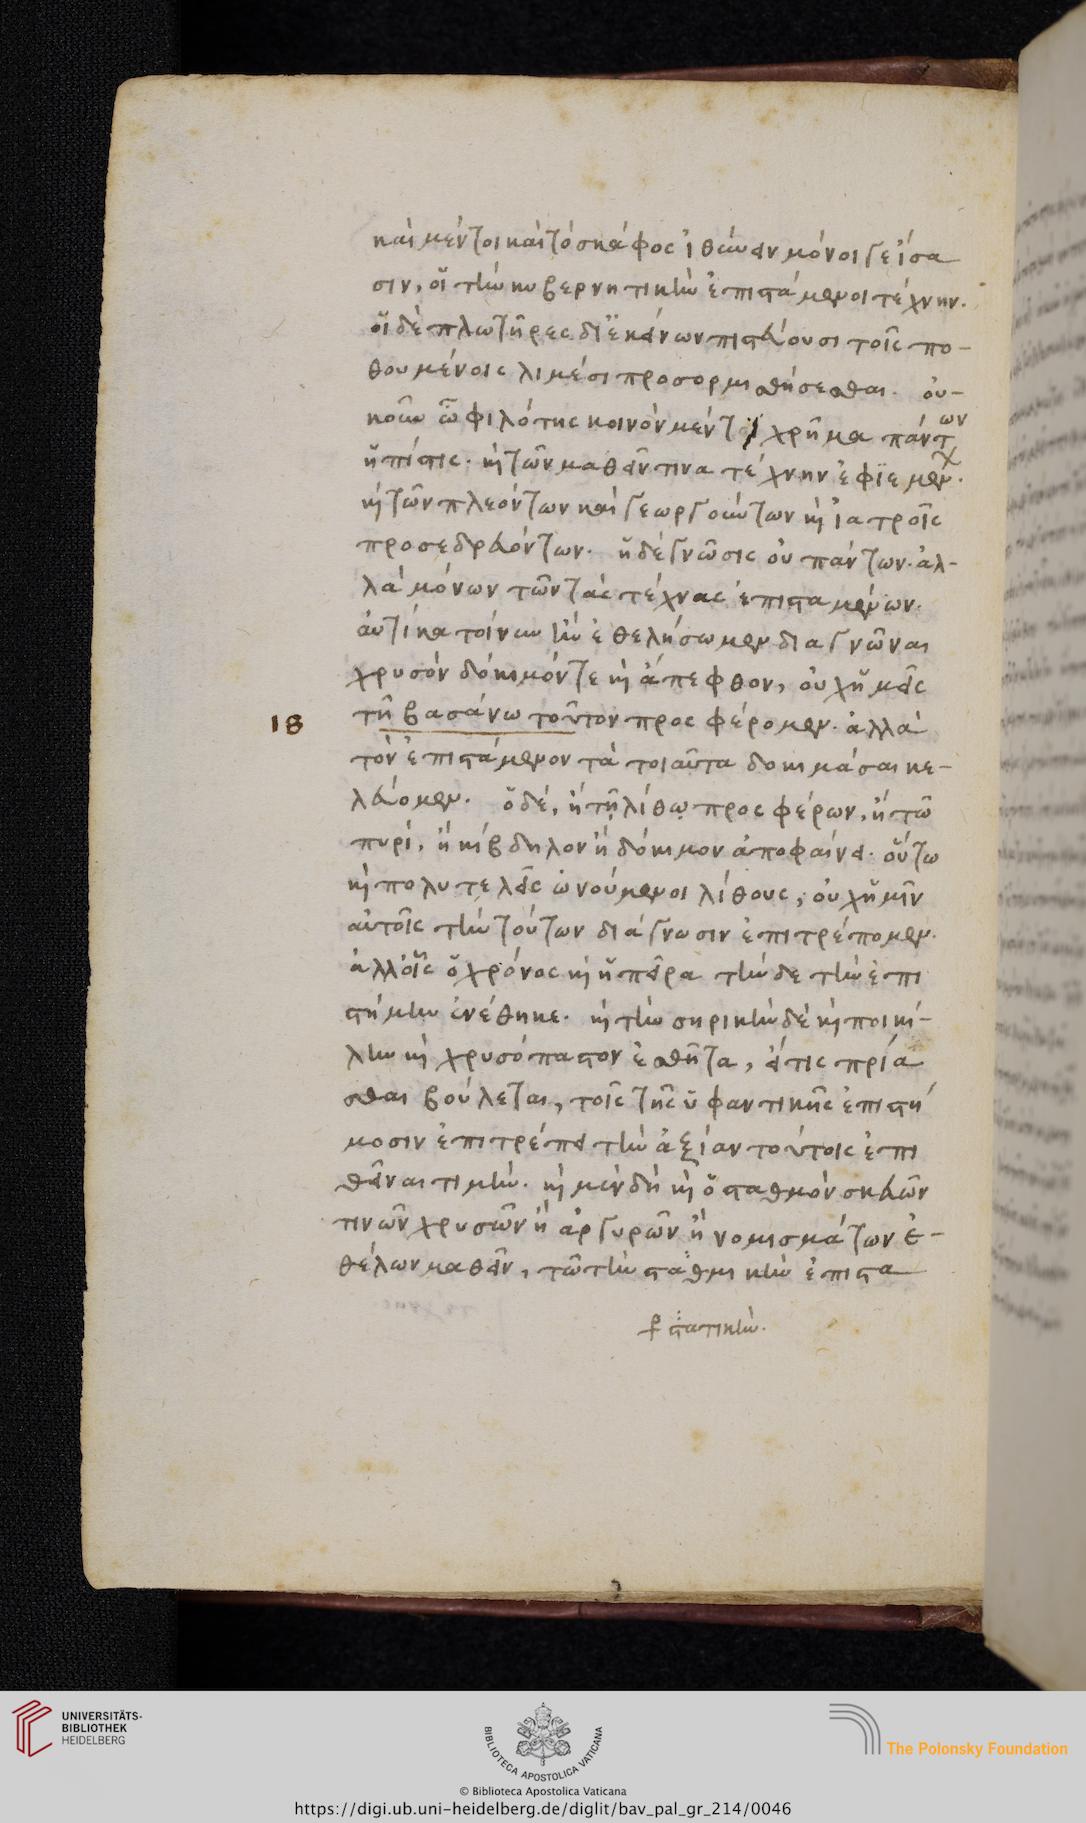 καὶ μέντοι καὶ τὸ σκάφος ἰθύνειν μόνοι γε ἴσα
σιν, οἵ τὴν κυβερνητικὴν ἐπιστάμενοι τέχνην.
οἵ δὲ πλωτῆρες δι' ἐκείνων πιστεύουσι τοῖς πο-
θουμένοις λιμέσι προσορμισθήσεσθαι. οὐ-
κοῦν ὦ φιλότης κοινὸν μέντοι χρῆμα πάντων
ἡ πίστις. καὶ τῶν μαθεῖν τινα τέχνην ἐφϊεμένων.
καὶ τῶν πλεόντων καὶ γεωργούντων καὶ ἰατροῖς
προσεδρευόντων. ἡ δὲ γνῶσις οὐ πάντων. ἀλ-
λὰ μόνων τῶν τὰς τέχνας ἐπισταμένων.
αὐτίκα τοίνυν ἢν ἐθελήσωμεν διαγνῶναι
χρυσὸν δόκιμόν τε καὶ ἄπεφθον, οὐχ ἡμεῖς
18 τῇ βασάνω τοῦτον προσφέρομεν. ἀλλὰ
τὸν ἐπιστάμενον τὰ τοιαῦτα δοκιμάσαι κε-
λεύομεν. ὁ δέ, ἢ τῇ λίθῳ προσφέρων, ἢ τῶ
πυρί, ἢ κίβδηλον ἢ δόκιμον ἀποφαίνει. οὕτω
καὶ πολυτελεῖς ὠνούμενοι λίθους, οὐχ ἡμῖν
αὐτοῖς τὴν τούτων διάγνωσιν ἐπιτρέπομεν.
ἀλλ' οἷς ὁ χρόνος καὶ ἡ πεῖρα τήνδε τὴν ἐπι
στήμην ἐνέθηκε. καὶ τὴν σηρικὴν δὲ καὶ ποικί-
λην καὶ χρυσόπαστον ἐσθῆτα, εἴ τις πρία
σθαι βούλεται, τοῖς τῆς ὑφαντικῆς ἐπιστή
μοσιν ἐπιτρέπει τὴν ἀξίαν τούτοις ἐπι
θεῖναι τιμήν. καὶ μὲν δὴ καὶ ὁ σταθμὸν σκευῶν
τινῶν χρυσῶν ἢ ἀργυρῶν ἢ νομισμάτων ἐ-
θέλων μαθεῖν, τῶ τὴν σταθμικὴν ἐπιστα
στατικήν.
UNIVERSITÄTS-
BIBLIOTHEK
HEIDELBERG
BIBLIOTECA APOSTOLICA VATICANA
The Polonsky Foundation
© Biblioteca Apostolica Vaticana
https://digi.ub.uni-heidelberg.de/diglit/bav_pal_gr_214/0046